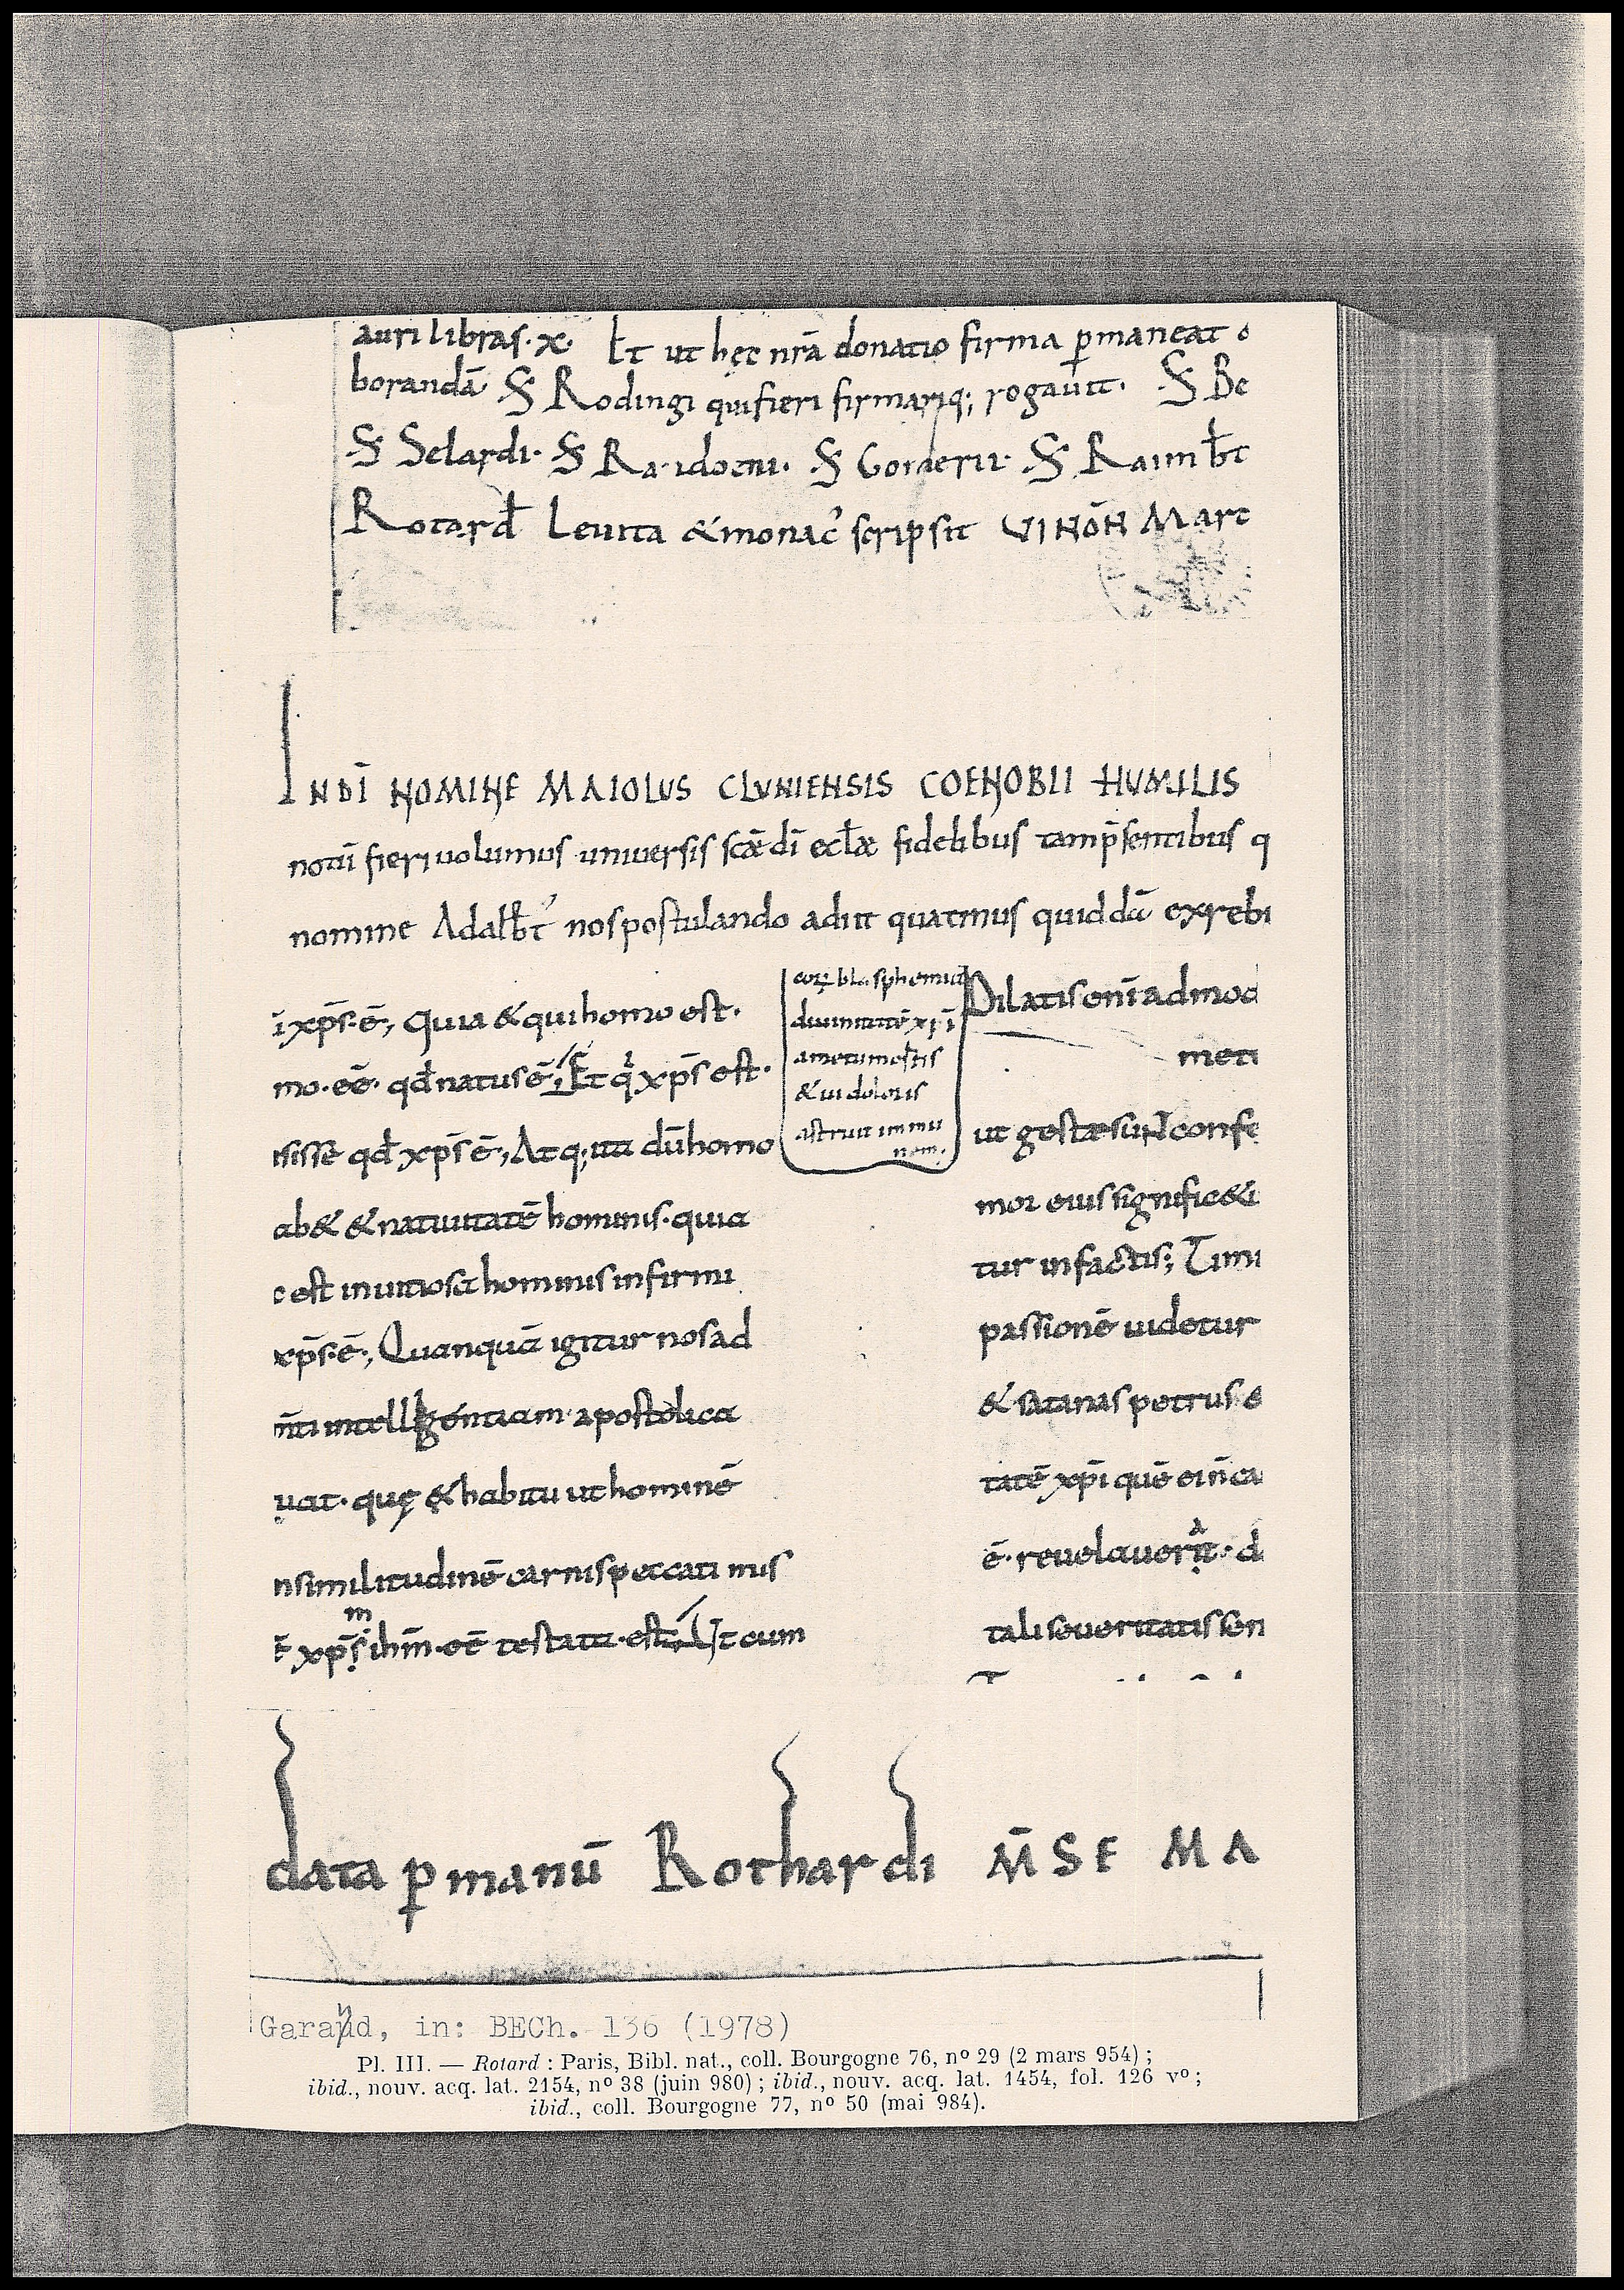 auri libras·x· Et ut hęc nr̄a donatio firma ꝑmaneat
borandā S Rodingi qui fieri firmariq; rogauit· S Be
S Selardi· S Ra·idoeni· S Gorderii· S Raimb̄t
Rotard̄ Leuita &monac̓ scripsit VI NŌN Mart
IN DĪ NOMINE MAIOLUS CLVNIENSIS COENOBII HUMILIS
notū fieri uolumus uniuersis scǣ dī eccl̄æ fidelibus tam p̄sentibus q
nomine Adalb̄t̓ nos postulando adiit quatinus quiddā ex rebi
ī xp̄s·ē, Quia & qui homo est·
mo·eē· qd̄ natus ē; Et q̓ xp̄s est·
isisse qd̄ xp̄s ē, Atq; ita dū homo
ab& & natiuitatē hominis· quia
c est in uitiosa hominis infirmi
xp̄s·ē·, Quanquā igitur nos ad
n̄ti intelligentiam· apostolica
uat· quę & habitu ut hominē
nsimilitudinē carnis peccati mis
m
ē xp̄s ihm̄·eē testata·est; Ut cum
eorų blasphemia
diuinitatē xp̄i
a metu mortis
& ui doloris
astruit immu
nem·
Dilatis enī ad mod
meti
ut gestæ sunt confe
mor eius signific&i
tur in factis; Timi
passionē uidetur
& satanas petrus e
tatē xp̄i quē ei n̄ ca
ē· reuelauerit·· d
tali seueritatis sen
data ꝑ manū Rothardi M̄SE MA
Garand, in: BECh. 136 (1978)
Pl. III. — Rotard : Paris, Bibl. nat., coll. Bourgogne 76, nº 29 (2 mars 954) ;
ibid., nouv. acq. lat. 2154, nº 38 (juin 980) ; ibid., nouv. acq. lat. 1454, fol. 126 vº ;
ibid., coll. Bourgogne 77, nº 50 (mai 984).